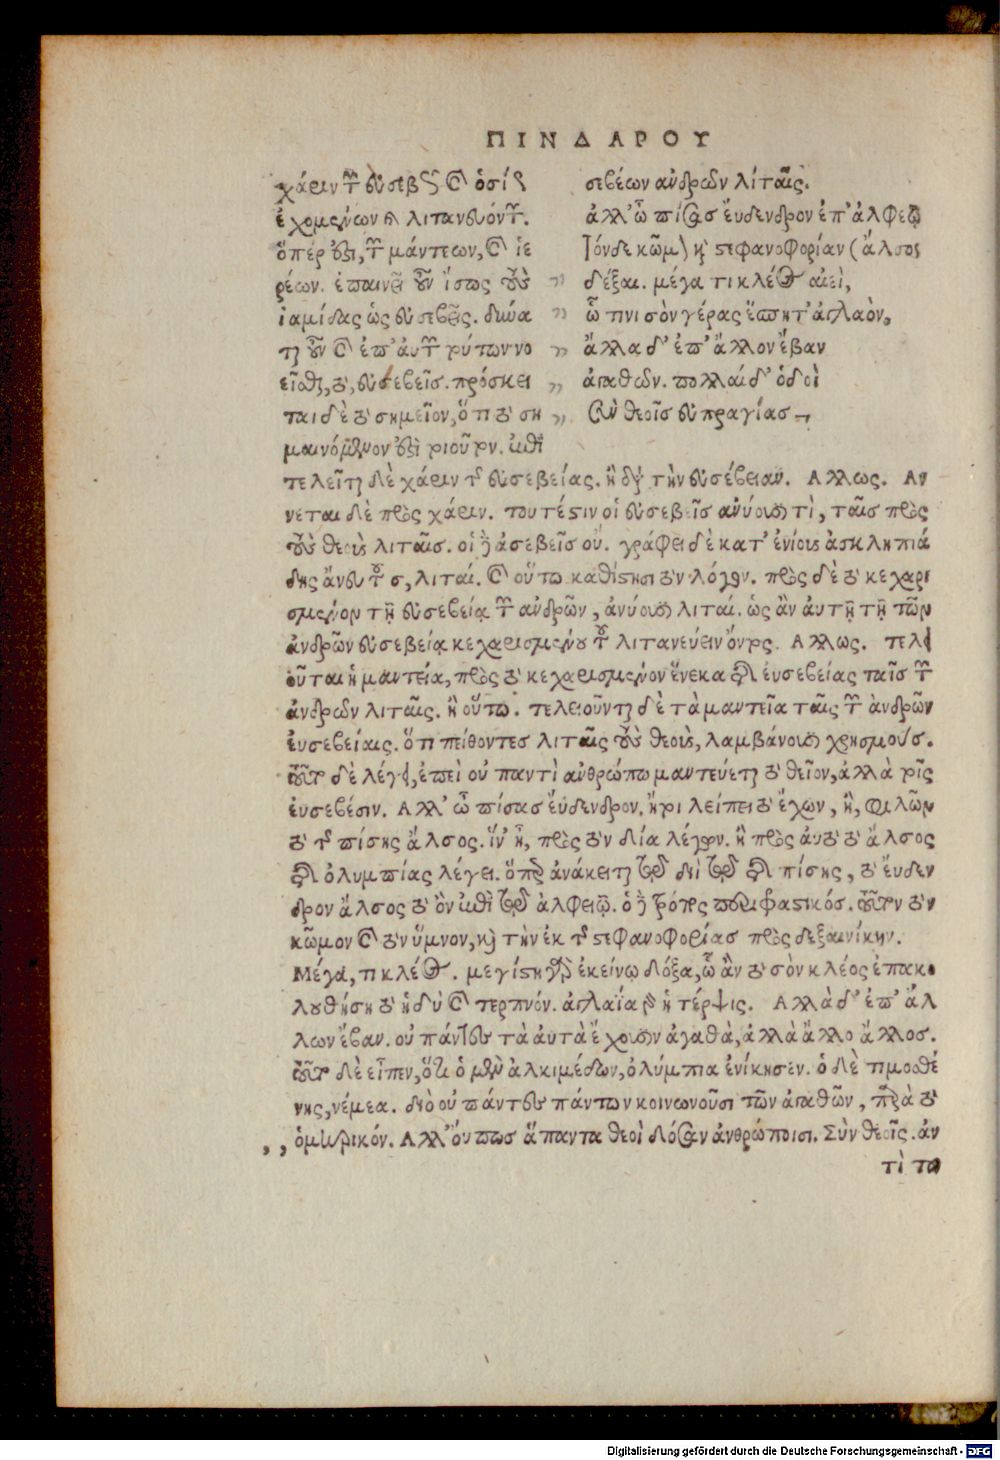 ΠΙΝΔΑΡΟΥ
χάριν τῶν εὐσεβῶν καὶ ὁσίων
ἐχομένων λιτανευόντων.
ὅπέρ ἐστι, τῶν μάντεων, καὶ ἱε
ρέων. ἐπαινεῖ οὖν ἴσως τοὺς
ἰαμίδας ὡς εὐσεβεῖς. δύνα
ται οὖν καὶ ἐπ' αὐτῶν τούτων νο
εῖσθαι, τὸ, εὐσεβεῖς. πρόσκει
ται δὲ τὸ σημεῖον, ὅτι τὸ ση
μαινόμενον ἐστὶ τοιοῦτον. ἐπι
σεβέων ἀνδρῶν λίταῖς.
ἀλλ' ὦ πίσας εὔδενδρον ἐπ' ἀλφεῷ
τόνδε κῶμον καὶ στεφανοφορίαν (ἄλσος
δέξαι. μέγα τι κλέος αἰεὶ,
ᾧ τινι σὸν γέρας ἕσπητ' ἀγλαὸν,
ἄλλα δ' ἐπ' ἄλλον ἔβαν
ἀγαθῶν. πολλαί δ' ὁδοὶ
σὺν θεοῖς εὐπραγίας
τελεῖται δὲ χάριν τῆς εὐσεβείας. ἢ διὰ τὴν εὐσέβειαν. Αλλως. Αν
νεται δὲ πρὸς χάριν. τουτέστιν οἱ εὐσεβεῖς ἀνύουσί τὶ, ταῖς πρὸς
τοὺς θεοὺς λιταῖς. οἱ δὲ ἀσεβεῖς οὔ. γράφει δὲ κατ' ἐνίους ἀσκληπιά
δης ἄνευ τοῦ ς, λιταί. καὶ οὕτω καθίστησι τὸν λόγον. πρὸς δὲ τὸ κεχαρι
σμένον τῇ εὐσεβείᾳ τῶν ἀνδρῶν, ἀνύουσι λιταί. ὡς ἂν αὐτῇ τῇ τῶν
ἀνδρῶν εὐσεβείᾳ κεχαρισμένου τοῦ λιτανεύειν ὄντος. Αλλως. τελει
οῦται ἡ μαντεία, πρὸς τὸ κεχαρισμένον ἕνεκα τῆς εὐσεβείας ταῖς τῶν
ἀνδρῶν λιταῖς. ἢ οὕτω. τελειοῦνται δὲ τὰ μαντεῖα ταῖς τῶν ἀνδρῶν
εὐσεβείαις. ὅτι πείθοντες λιταῖς τοὺς θεοὺς, λαμβάνουσι χρησμούς.
τοῦτο δὲ λέγει, ἐπεὶ οὐ παντὶ ἀνθρώπῳ μαντεύεται τὸ θεῖον, ἀλλὰ τοῖς
εὐσεβέσιν. Αλλ' ὦ πίσας εὔδενδρον. ἤτοι λείπει τὸ ἔχων, ἢ, φιλῶν
τὸ τῆς πίσης ἄλσος. ἵν' ᾖ, πρὸς τὸν δία λέγων. ἢ πρὸς αὐτὸ τὸ ἄλσος
τῆς ὀλυμπίας λέγει. ὅπερ ἀνάκειται τῷ διὶ τῷ τῆς πίσης, τὸ εὔδεν
δρον ἄλσος τὸ ὂν ἐπὶ τῷ ἀλφειῷ. ὁ δὲ τρόπος προσφαστικός. τοῦτον τὸν
κῶμον καὶ τὸν ὕμνον, καὶ τὴν ἐκ τῆς στεφανοφορίας πρὸς δεξαινίκην.
Μέγα, τι κλέος. μεγίστη γὰρ ἐκείνῳ δόξα, ᾧ ἂν τὸ σὸν κλέος ἐπακο
λουθήσῃ τὸ ἡδὺ καὶ τερπνόν. ἀγλαΐα γὰρ ἡ τέρψις. Αλλὰ δ' ἐπ' ἄλ
λων ἔβαν. οὐ πάντες τὰ αὐτὰ ἔχουσιν ἀγαθὰ, ἀλλὰ ἄλλο ἄλλος.
τοῦτο δὲ εἶπεν, ὅτι ὁ μὲν ἀλκιμέδων, ὀλύμπια ἐνίκησεν. ὁ δὲ τιμοσθέ
νης, νέμεα. διὸ οὐ πάντες πάντων κοινωνοῦσι τῶν ἀγαθῶν, παρὰ τὸ
ὁμηρικόν. Αλλ' οὔπως ἅπαντα θεοὶ δόσαν ἀνθρώποισι. Σὺν θεοῖς. ἀν
τὶ το
Digitalisierung gefördert durch die Deutsche Forschungsgemeinschaft - DFG